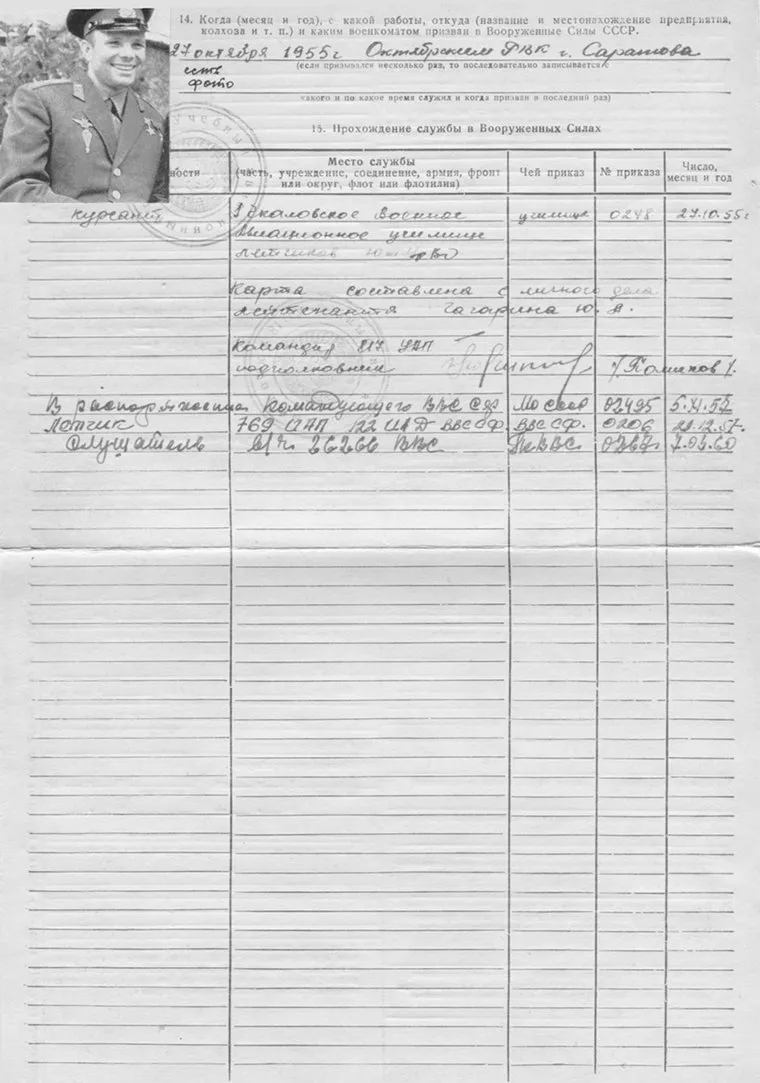 14. Когда (месяц и год), с какой работы, откуда (название и местонахождение предприятия,
колхоза и т. п.) и каким военкоматом призван в Вооруженные Силы СССР.
27 октября 1955 г Октябрьским РВК г. Саратова
(если призывался несколько раз, то последовательно записывается с
есть
фото
какого и по какое время служил и когда призван в последний раз)
15. Прохождение службы в Вооруженных Силах
ности
Место службы
(часть, учреждение, соединение, армия, фронт
или округ, флот или флотилия)
Чей приказ
№ приказа
Число,
месяц и год
курсант 1 Чкаловское Военное училище 0248 27.10.55г
Авиационное училище
летчиков
Карта составлена с личного дела
лейтенанта Гагарина Ю. А.
Командир УАП
подполковник
В распоряжении Командующего ВВС СФ МО СССР 02495 5.XI.57
Летчик 769 ИАП 122 ИАД ВВС СФ. ВВС СФ. 0206 12.57г.
Слушатель в/ч 26266 ВВС ГК ВВС 7.03.60